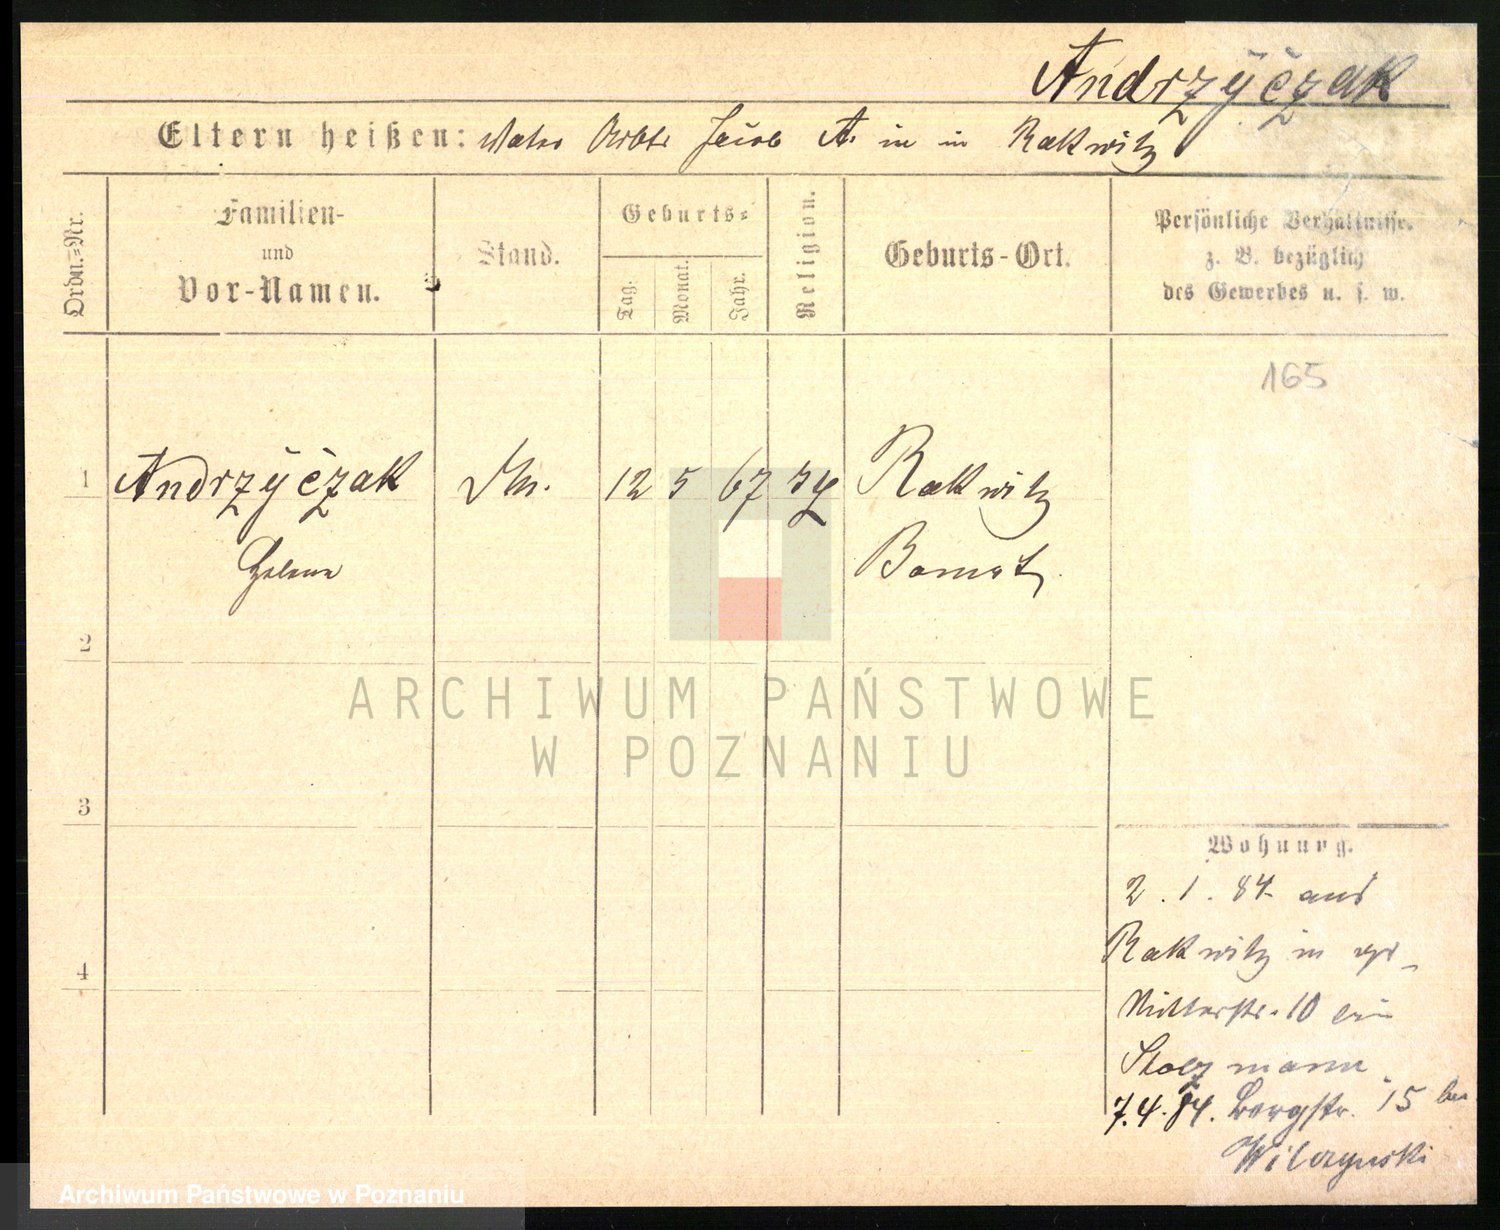 Andrzÿčzak
Eltern heißen: Vater Arbtr Jacob A. in Rakwitz
Ordn.=Nr.
Familien-
und
Vor-Namen.
Stand.
Geburts=
Tag.
Monat.
Jahr.
Religion.
Geburts-Ort.
Persönliche Verhältnisse.
z. B. bezüglich
des Gewerbes u. s. w.
165
1 Andrzÿčzak 12 5 67 Rakwitz
Helena Bomst
2
3
4
Wohnung.
2. 1. 84 aus
Rakwitz in
Ritterstr. 10 bei
Stolzmann
7.4.84. Bergstr. 15 bei
Wilczynski
ARCHIWUM PAŃSTWOWE
W POZNANIU
Archiwum Państwowe w Poznaniu